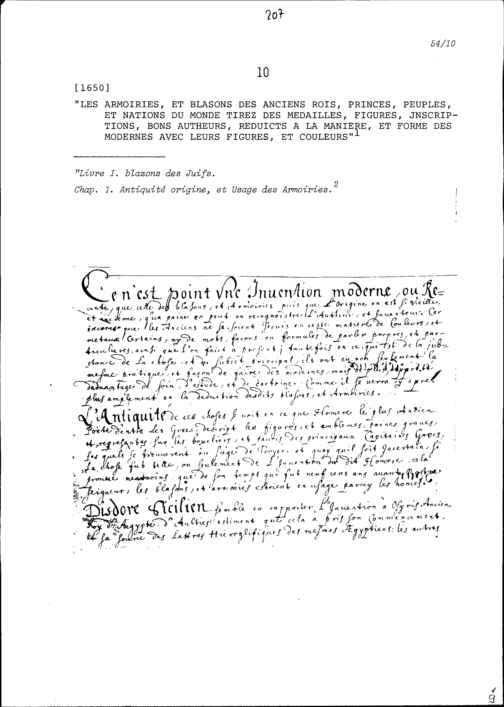 207
54/10
10
[1650]
"LES ARMOIRIES, ET BLASONS DES ANCIENS ROIS, PRINCES, PEUPLES,
ET NATIONS DU MONDE TIREZ DES MEDAILLES, FIGURES, JNSCRIP-
TIONS, BONS AUTHEURS, REDUICTS A LA MANIERE, ET FORME DES
MODERNES AVEC LEURS FIGURES, ET COULEURS"1
"Livre I. blazons des Juifs.
Chap. 1. Antiquité origine, et Usage des Armoiries.2
Ce n'est point Vne Inuention moderne, ou Re=
cente, que celle des blasons, et Armoiries puis que l'origine en est si vieille,
et ancienne, qu'a paine en peut on recognoistre l'Autheur, et Inuenteur. Car
encores que les Anciens ne se soient seruis en cesse matiere de Couleurs, et
metaux Certains, ny de mots, facons ou formules de parler propres, et par=
ticulieres, ainsi que l'on faict a present; toutefois en ce, qui est de la sub=
stance de la chose, et du subiect principal, ils ont eu non seulement la
mesme pratique, et façon de faire des modernes, mais
daduantages de soin, d'estude, et de doctrine. Comme il se uerra cy apres
plus amplement en la deduction desdits blasons, et Armoiries.
L'Antiquité de ces choses se uoit en ce que Homere le plus Ancien
Poete d'entre les Grecs descript les figures, et emblemes, paines graues,
et representes sur les boucliers, et des principaux Capitaines Grecs,
les quels se trouuerent au siege de Troyes. et quoy quil soit Jncertain, si
la chose fut telle, ou seulement de l'Inuention du dit Homere, cela
prouue neantmoins que de son temps qui fut neuf cens ans auant
Seigneur, les blasons, et armoiries estoient en usage parmy les homes.
Disdore Sicilien semble en rapporter l'Inuention a Osyris Ancien
Roy d'Aegypte, d'Aultres estiment que cela a pris son Commencement
en sa source des Lettres Hieroglifiques des mesmes Aegyptiens: les autres
9